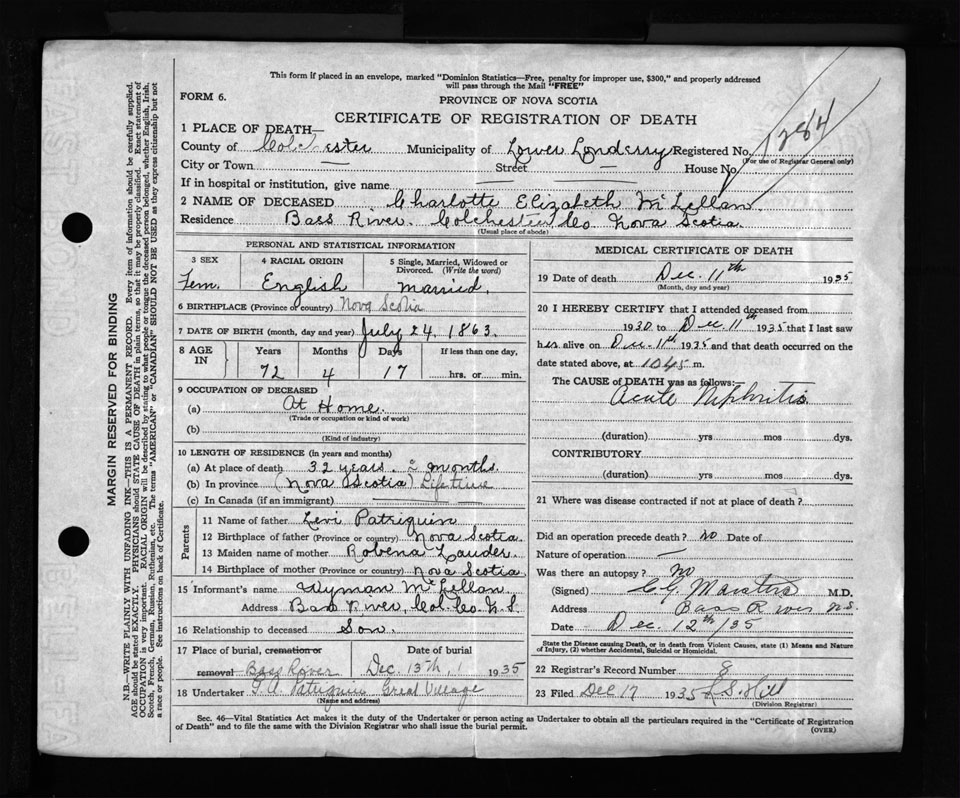 This form if placed in an envelope, marked "Dominion Statistics—Free, penalty for improper use, $300," and properly addressed
will pass through the Mail "FREE"
FORM 6.
PROVINCE OF NOVA SCOTIA
CERTIFICATE OF REGISTRATION OF DEATH
1284
1 PLACE OF DEATH—
County of Colchester Municipality of Lower Londerry Registered No.
(For use of Registrar General only)
City or Town — Street — House No.
If in hospital or institution, give name — —
2 NAME OF DECEASED Charlotte Elizabeth McLellan
Residence Bass River. Colchester Co Nova Scotia.
(Usual place of abode)
PERSONAL AND STATISTICAL INFORMATION
3 SEX 4 RACIAL ORIGIN 5 Single, Married, Widowed or Divorced. (Write the word)
Fem. English Married.
6 BIRTHPLACE (Province or country) Nova Scotia
7 DATE OF BIRTH (month, day and year) July 24, 1863.
8 AGE IN Years Months Days If less than one day,
72 4 17 hrs. or min.
9 OCCUPATION OF DECEASED
(a) At Home.
(Trade or occupation or kind of work)
(b)
(Kind of industry)
10 LENGTH OF RESIDENCE (in years and months)
(a) At place of death 32 years. 2 months.
(b) In province (Nova Scotia) Lifetime
(c) In Canada (if an immigrant)
Parents
11 Name of father Levi Patriquin
12 Birthplace of father (Province or country) Nova Scotia.
13 Maiden name of mother Robena Lauder.
14 Birthplace of mother (Province or country) Nova Scotia
15 Informant's name Wyman McLellan.
Address Bass River, Col. Co. N.S.
16 Relationship to deceased Son.
17 Place of burial, cremation or removal Bass River Date of burial Dec 13th, 1935
18 Undertaker Patriquin Great Village
(Name and address)
MEDICAL CERTIFICATE OF DEATH
19 Date of death Dec. 11th 1935
(Month, day and year)
20 I HEREBY CERTIFY that I attended deceased from
1930 to Dec. 11th 1935 that I last saw
her alive on Dec. 11th 1935 and that death occurred on the
date stated above, at 1045 m.
The CAUSE of DEATH was as follows:—
Acute Nephritis
(duration) yrs mos dys.
CONTRIBUTORY
(duration) yrs mos dys.
21 Where was disease contracted if not at place of death?
Did an operation precede death? no Date of
Nature of operation —
Was there an autopsy? no
(Signed) M.D.
Address Bass River N.S.
Date Dec. 12th/35
State the Disease causing Death, or in death from Violent Causes, state (1) Means and Nature
of Injury, (2) whether Accidental, Suicidal or Homicidal.
22 Registrar's Record Number 8
23 Filed Dec 17 1935 S. Hill
(Division Registrar)
Sec. 46—Vital Statistics Act makes it the duty of the Undertaker or person acting as Undertaker to obtain all the particulars required in the "Certificate of Registration
of Death" and to file the same with the Division Registrar who shall issue the burial permit.
(OVER)
MARGIN RESERVED FOR BINDING
N.B.—WRITE PLAINLY WITH UNFADING INK—THIS IS A PERMANENT RECORD. Every item of information should be carefully supplied.
AGE should be stated EXACTLY. PHYSICIANS should STATE CAUSE OF DEATH in plain terms, so that it may be properly classified. Exact statement of
OCCUPATION is very important. RACIAL ORIGIN will be described by stating to what people or tongue the deceased person belonged, whether English, Irish,
Scotch, French, German, Russian, Ruthenian, etc. The terms "AMERICAN" or "CANADIAN" SHOULD NOT BE USED as they express citizenship but not
a race or people. See instructions on back of Certificate.